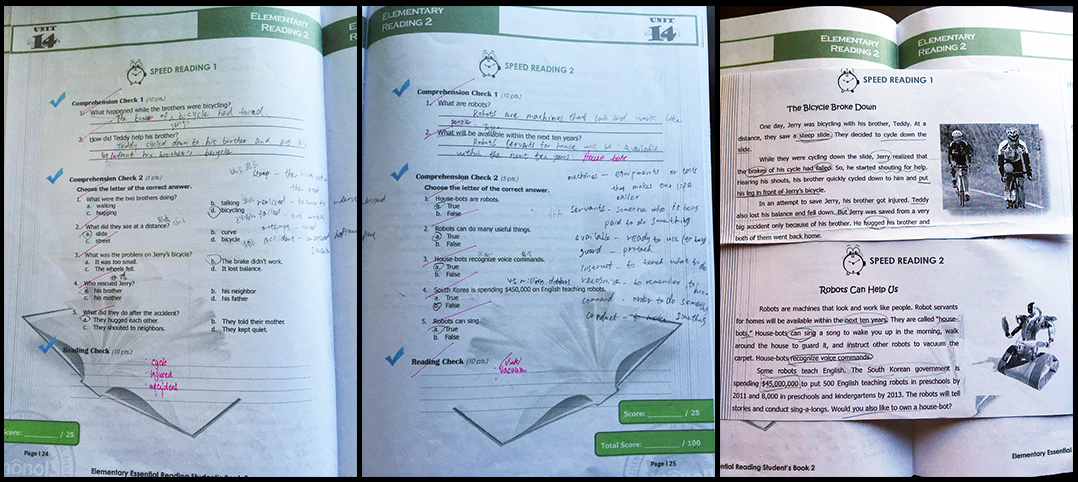 UNIT
14
ELEMENTARY
READING 2
SPEED READING 1
Comprehension Check 1 (10 pts.)
1. What happened while the brothers were bicycling?
The brake of bicycle had failed.
2. How did Teddy help his brother?
Teddy cycled down to his brother and put his
leg
bicycle
Comprehension Check 2 (5 pts.)
Choose the letter of the correct answer.
1. What were the two brothers doing?
a. walking b. talking
c. hugging d. bicycling
2. What did they see at a distance?
a. slide b. curve
c. street d. bicycle
3. What was the problem on Jerry's bicycle?
a. It was too small. b. The brake didn't work.
c. The wheels fell. d. It lost balance.
4. Who rescued Jerry?
a. his brother b. his neighbor
c. his mother d. his father
5. What did they do after the accident?
a. They hugged each other. b. They told their mother.
c. They shouted to neighbors. d. They kept quiet.
Reading Check (10 pts.)
cycle
injured
accident
Score: / 25
Page | 24
Elementary Essential Reading Student's Book 2
ELEMENTARY
READING 2
UNIT
14
SPEED READING 2
Comprehension Check 1 (10 pts.)
1. What are robots?
Robots are machines that look and work like
people.
2. What will be available within the next ten years?
Robots servants for house will be available
within the next ten years. House bots
Comprehension Check 2 (5 pts.)
Choose the letter of the correct answer.
1. House-bots are robots.
a. True
b. False
2. Robots can do many useful things.
a. True
b. False
3. House-bots recognize voice commands.
a. True
b. False
4. South Korea is spending $450,000 on English teaching robots.
a. True
b. False
5. Robots can sing.
a. True
b. False
machines - equipments or tools
that makes our life
easier
servants - someone who is being
paid to do something
available - ready to use
guard - protect
instruct - to teach what to do
45 million dollars
recognize - to remember
command - order to do something
conduct -
Reading Check (10 pts.)
vacuum
Score: / 25
Total Score: / 100
Page | 25
ELEMENTARY
READING 2
ELEMENTARY
READING 2
SPEED READING 1
The Bicycle Broke Down
One day, Jerry was bicycling with his brother, Teddy. At a
distance, they saw a steep slide. They decided to cycle down the
slide.
While they were cycling down the slide, Jerry realized that
the brakes of his cycle had failed. So, he started shouting for help.
Hearing his shouts, his brother quickly cycled down to him and put
his leg in front of Jerry's bicycle.
In an attempt to save Jerry, his brother got injured. Teddy
also lost his balance and fell down. But Jerry was saved from a very
big accident only because of his brother. He hugged his brother and
both of them went back home.
SPEED READING 2
Robots Can Help Us
Robots are machines that look and work like people. Robot servants
for homes will be available within the next ten years. They are called "house-
bots." House-bots can sing a song to wake you up in the morning, walk
around the house to guard it, and instruct other robots to vacuum the
carpet. House-bots recognize voice commands.
Some robots teach English. The South Korean government is
spending $45,000,000 to put 500 English teaching robots in preschools by
2011 and 8,000 in preschools and kindergartens by 2013. The robots will tell
stories and conduct sing-a-longs. Would you also like to own a house-bot?
ential Reading Student's Book 2
Elementary Essential